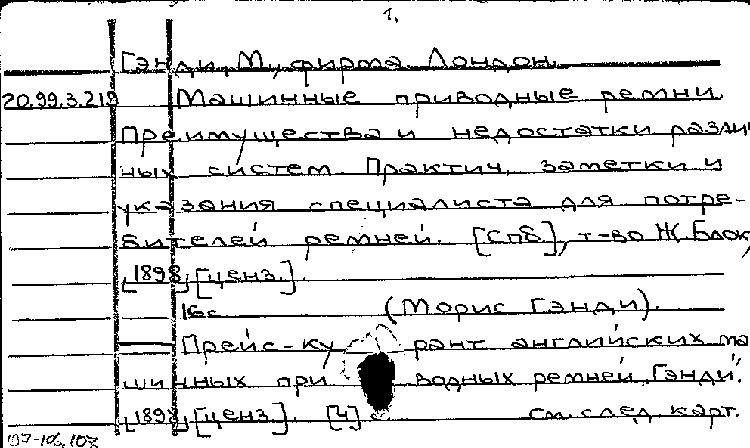 1.
Гэнди, М., фирма. Лондон.
20.99.3.219 Машинные приводные ремни.
Преимущества и недостатки различ
ных систем. Практич. заметки и
указания специалиста для потре-
бителей ремней. [Спб], т-во Ж. Блок,
[1898] [ценз.].
16с. (Морис Гэнди).
Прейс-курант английских ма
шинных приводных ремней „Гэнди".
[1898] [ценз.]. [4] с. см. след. карт.